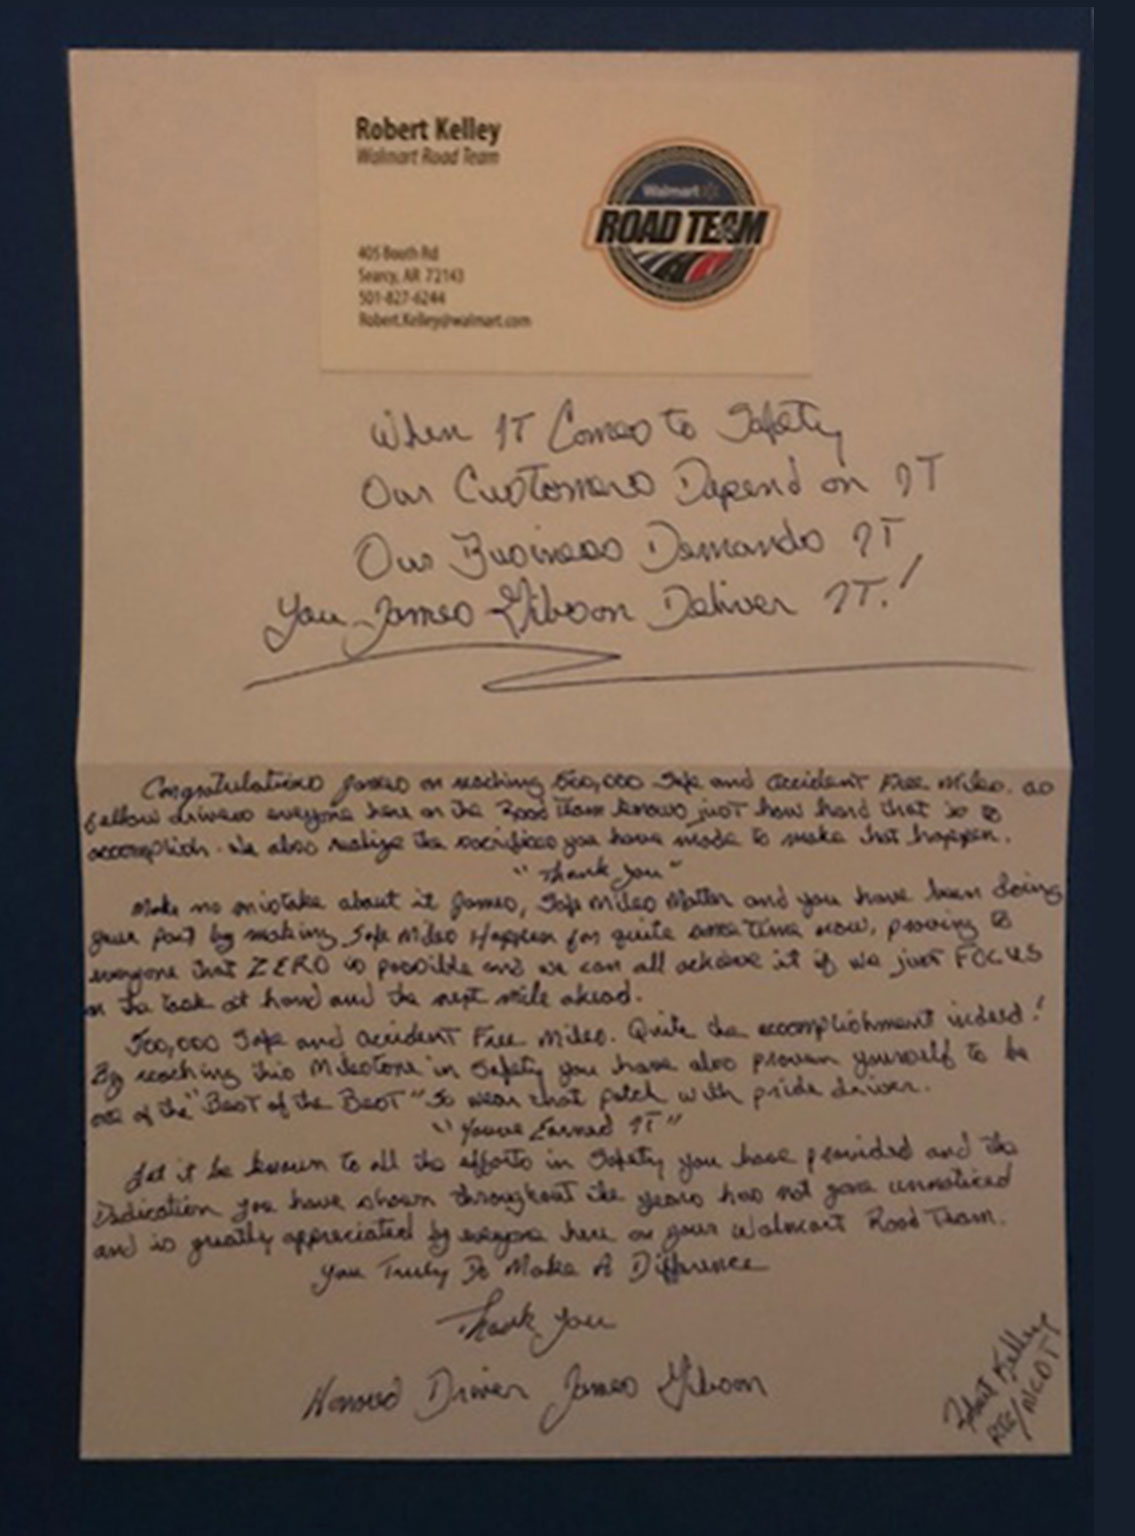 Robert Kelley
Walmart Road Team
Walmart
ROAD TEAM
405 Booth Rd
Searcy, AR 72143
501-827-6244
Robert.Kelley@walmart.com
When IT Comes to Safety
Our Customers Depend on IT
Our Business Demands IT
You James Gibson Deliver IT!
Congratulations James on reaching 500,000 Safe and Accident Free Miles. as
fellow drivers everyone here on the Road Team knows just how hard that is to
accomplish. We also realize the sacrifices you have made to make that happen.
"Thank you"
Make no mistake about it James, Safe Miles Matter and you have been doing
your part by making Safe Miles Happen for quite some time now, proving to
everyone that ZERO is possible and we can all achieve it if we just FOCUS
on the task at hand and the next mile ahead.
500,000 Safe and Accident Free Miles. Quite the accomplishment indeed!
By reaching this Milestone in Safety you have also proven yourself to be
one of the "Best of the Best" So wear that patch with pride driver.
"You've Earned IT"
Let it be known to all the efforts in Safety you have provided and the
Dedication you have shown throughout the years has not gone unnoticed
and is greatly appreciated by everyone here on your Walmart Road Team.
You Truly Do Make A Difference
Thank You
Honored Driver James Gibson
Robert Kelley